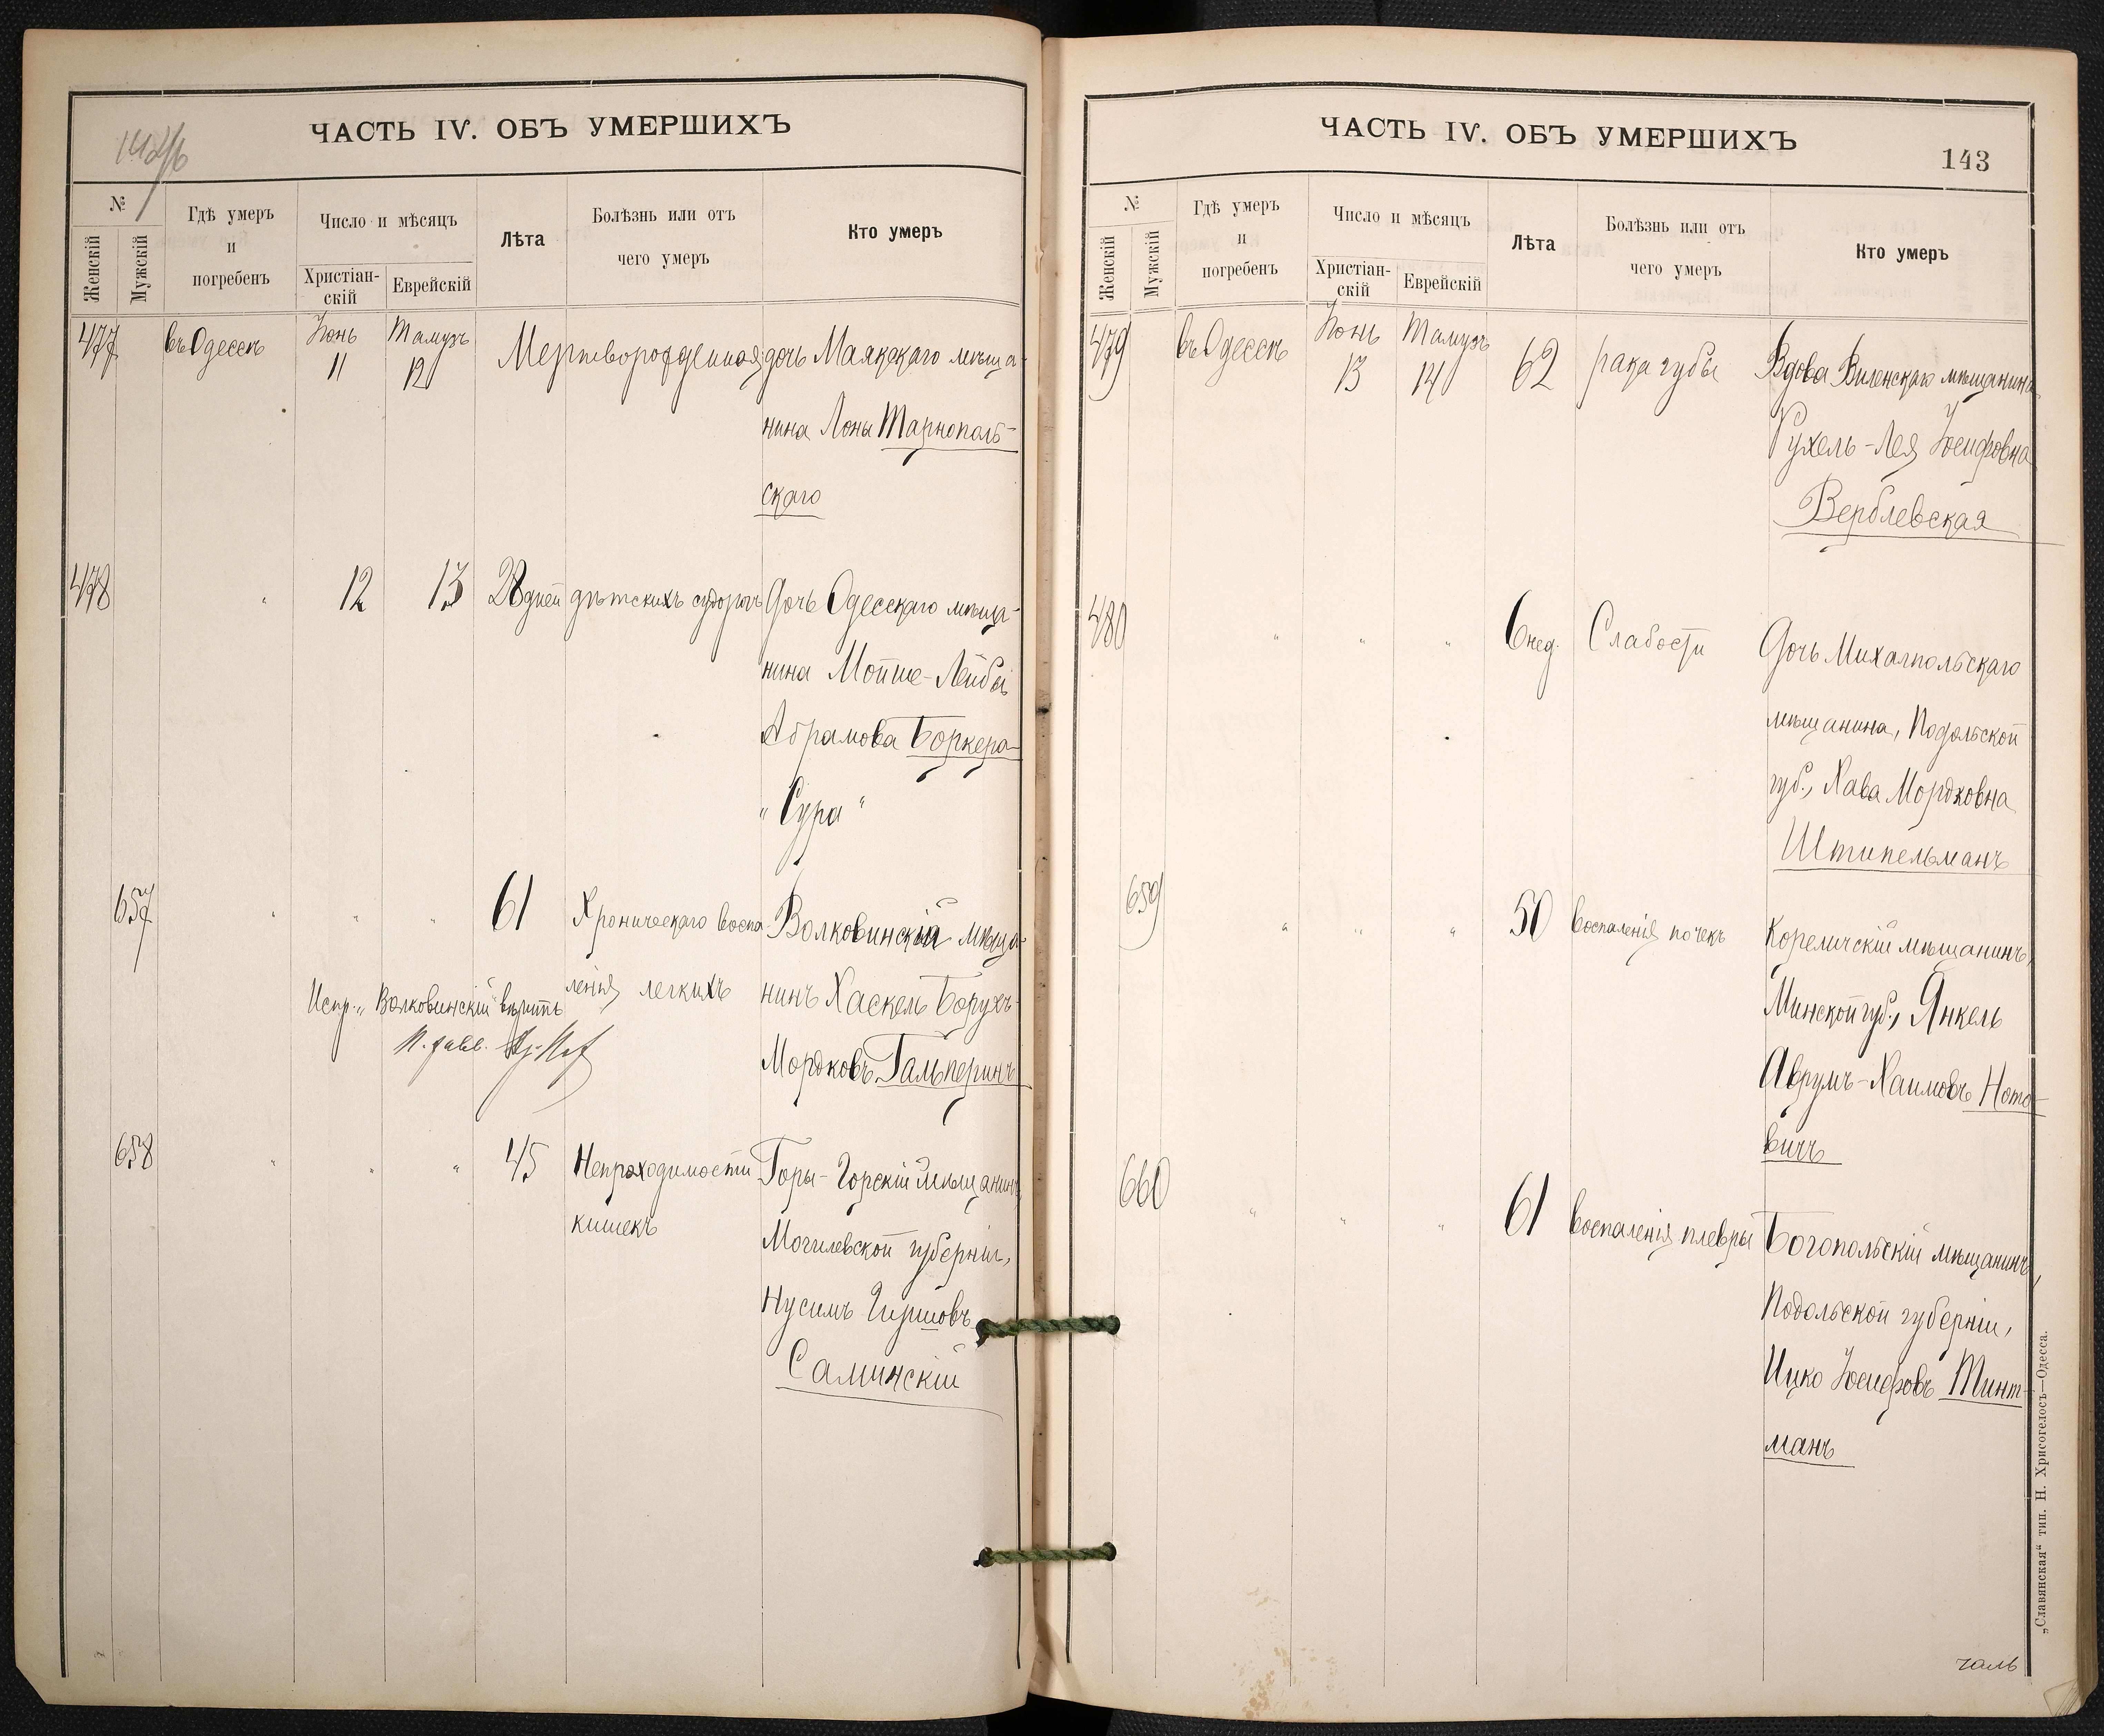 ЧАСТЬ IV. ОБЪ УМЕРШИХЪ
№
Женскій
Мужскій
Гдѣ умеръ
и
погребенъ
Число и мѣсяцъ
Христіан-
скій
Еврейскій
Лѣта
Болѣзнь или отъ
чего умеръ
Кто умеръ
477 въ Одессѣ Іюнь 11 Тамузъ 12 Мертворожденная дочь Маякскаго мѣща-
нина Лоны Тарнополь-
скаго
478 " 12 13 28 дней дѣтскихъ судорогъ Дочь Одесскаго мѣща-
нина Мойше-Лейбы
Абрамова Боркера
"Сура"
657 " " " 61 Хроническаго воспа- Волковинскій мѣща-
ленія легкихъ нинъ Хаскель Борухъ-
Испр. "Волковинскій" вѣрить
Мордковъ Гальперинъ
658 " " " 45 Непроходимости Горы-Горскій мѣщанинъ,
кишекъ
Могилевской губерніи,
Нусимъ Гершовъ
Саминскій
ЧАСТЬ IV. ОБЪ УМЕРШИХЪ
143
№
Женскій
Мужскій
Гдѣ умеръ
и
погребенъ
Число и мѣсяцъ
Христіан-
скій
Еврейскій
Лѣта
Болѣзнь или отъ
чего умеръ
Кто умеръ
479 въ Одессѣ Іюнь 13 Тамузъ 14 62 рака губы Вдова Виленскаго мѣщанина
Рухель-Лея Іосифовна
Верблевская
480 " " " 6 нед. Слабости Дочь Михалпольскаго
мѣщанина, Подольской
губ., Хава Мордковна
Штипельманъ
659 " " " 50 воспаленія почекъ Кореличскій мѣщанинъ,
Минской губ., Янкель
Аврумъ-Хаимовъ Ното-
вичъ
660 " " " 61 воспаленія плевры Богопольскій мѣщанинъ,
Подольской губерніи,
Ицко Іосифовъ Тинт-
манъ
„Славянская“ тип. Н. Хрисогелосъ—Одесса.